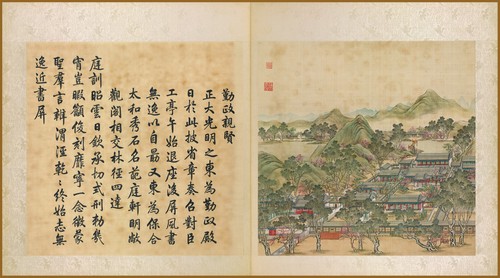 勤政親賢
正大光明之東為勤政殿
日於此披省章奏召對臣
工亭午始退座後屏風書
無逸以自勖又東為保合
太和秀石名葩庭軒明敞
觀閣相交林徑四達
庭訓昭雲日欽承切式刑勑幾
宵豈暇顧俊刻靡寧一念徵蒙
聖羣言辯渭涇乾〻終始志無
逸近書屏